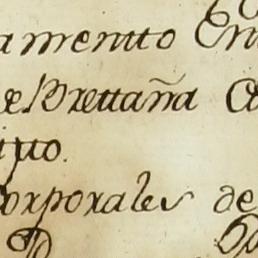 amentto En
de Brettaña Co
ipo.
orporales de